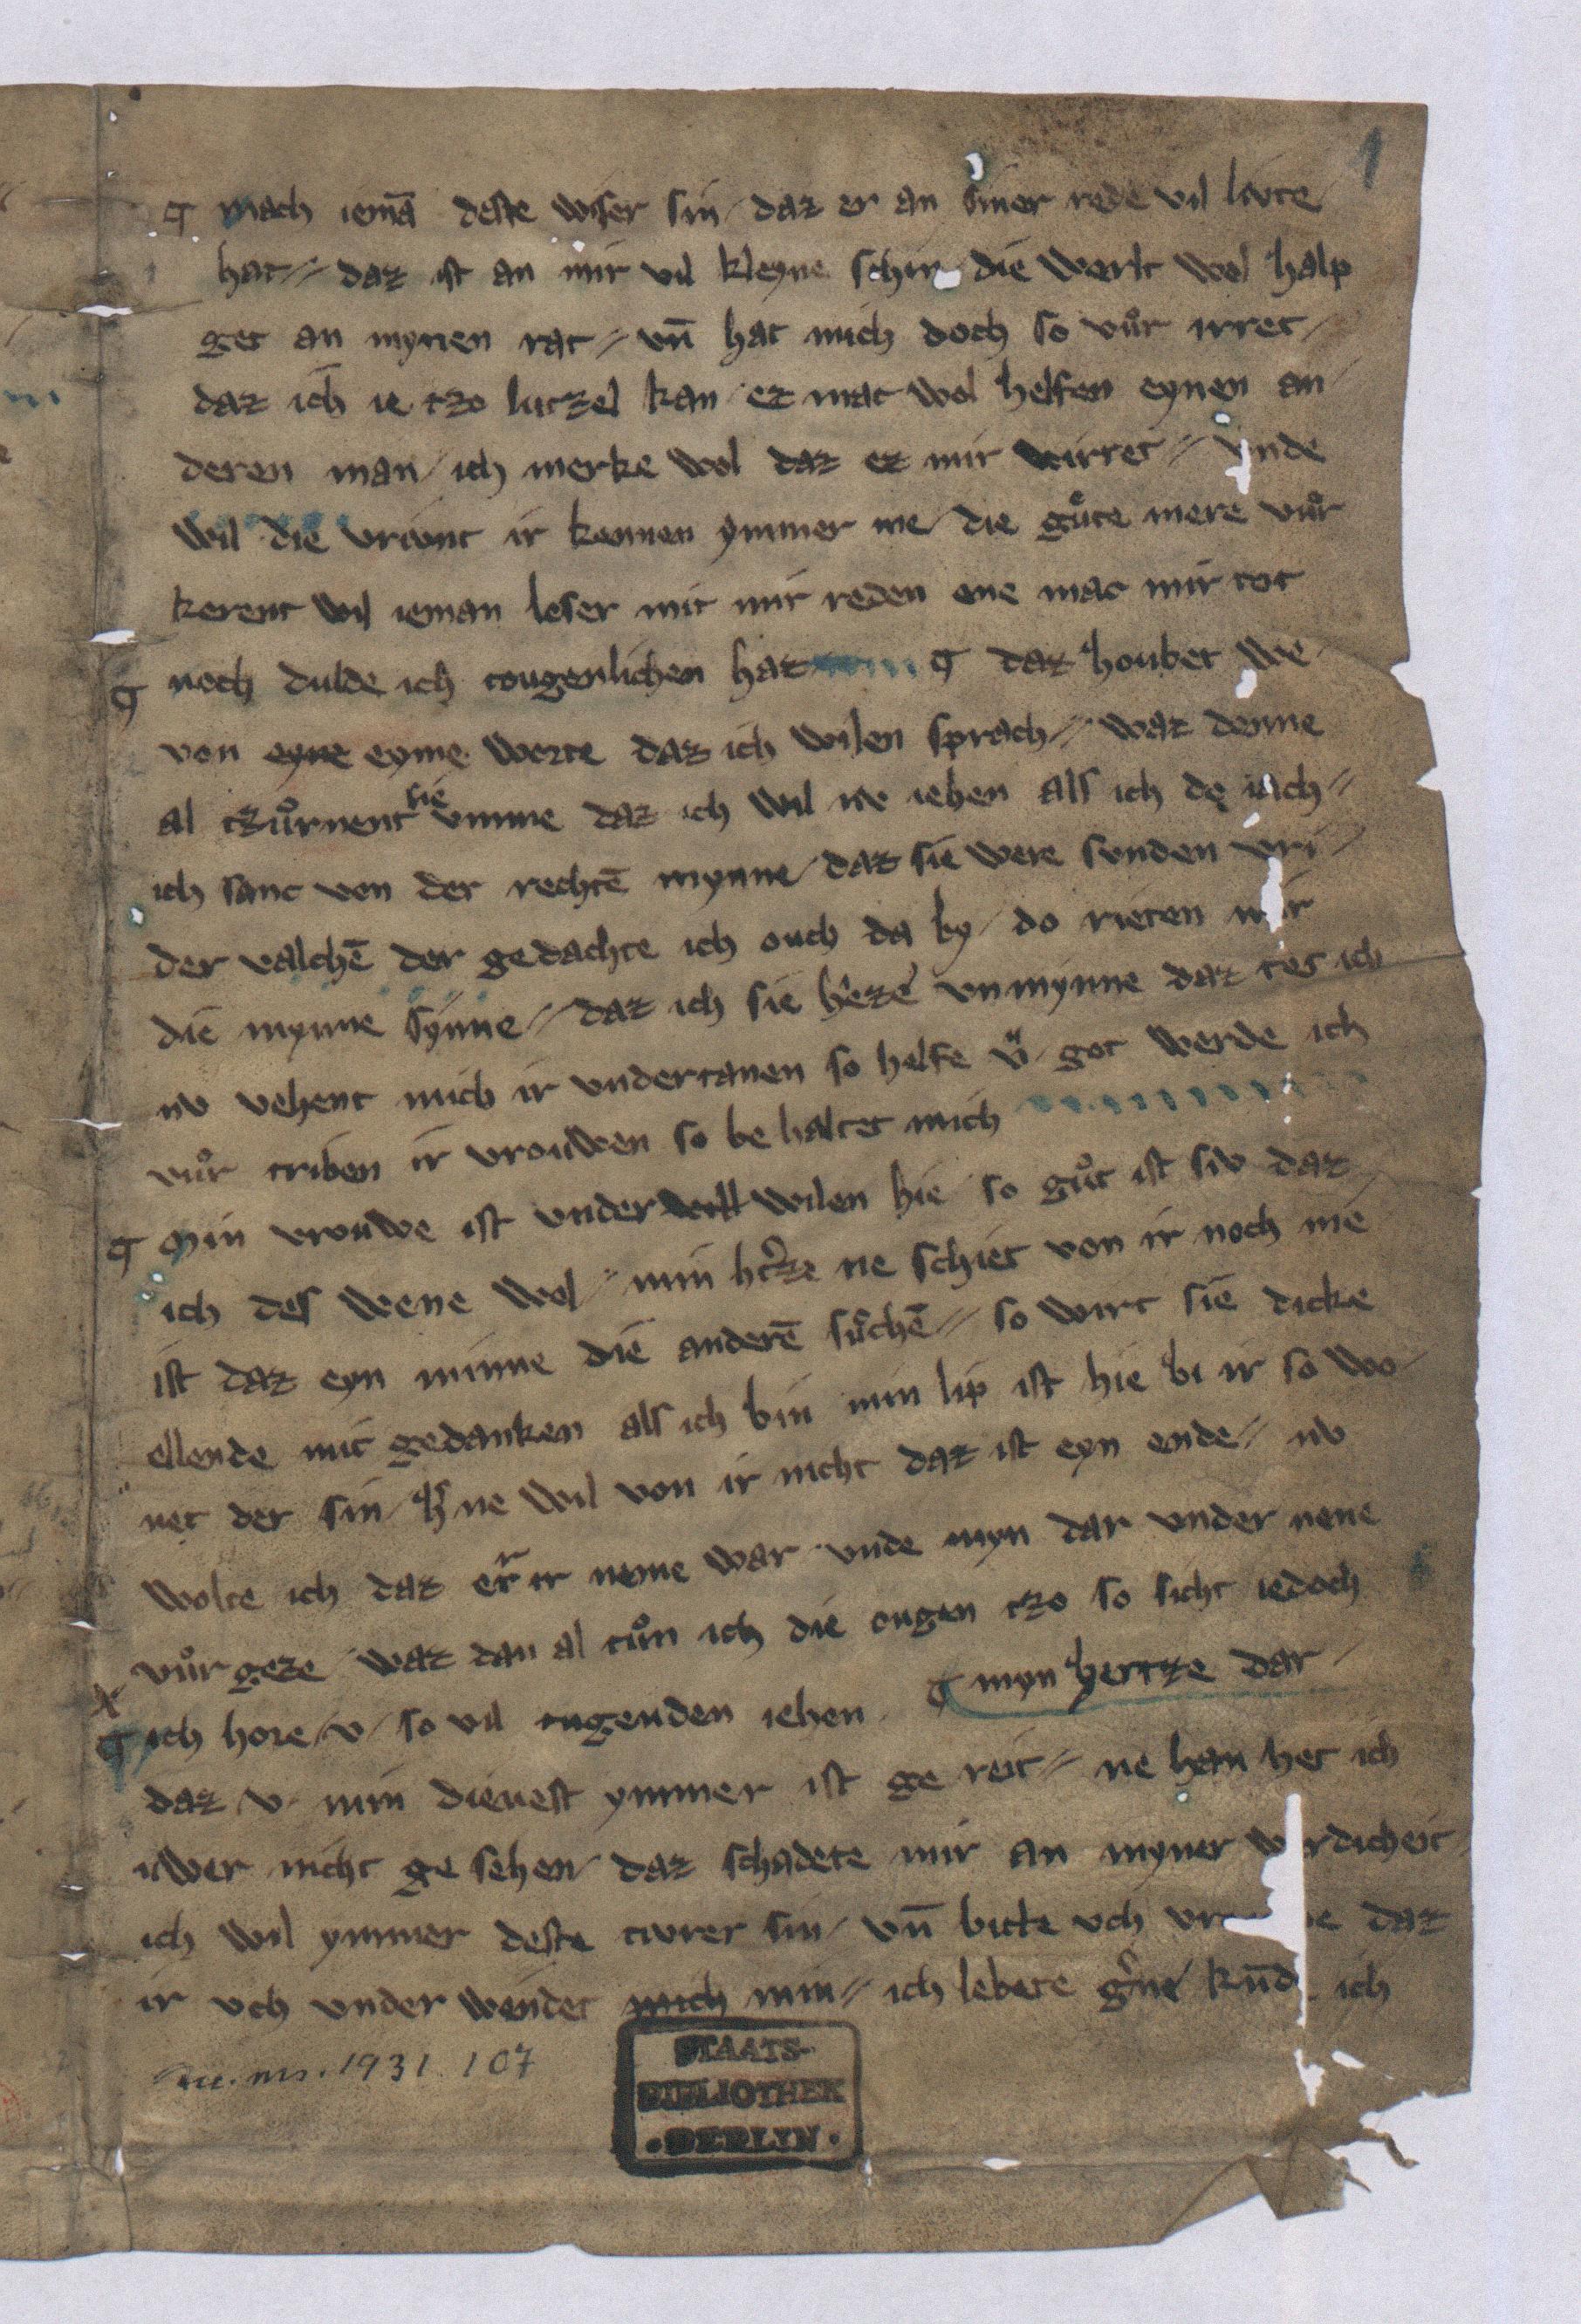 1
¶ mach iemā deste wiser sin / daz er an siner rede vil livte
hat // daz ist an mir vil kleyne schin / die werlt wol halp
get an mynen rat // vn̄ hat mich doch so vůr irret /
daz ich ie tzo lutzel kan / ez mac wol helfen eynen an /
deren man / ich merke wol daz ez mir wirret // vnde
wil die vrivnt ir kennen ymmer me / die gůte mere vůr
kerent wil ieman loser mit mir reden ene mac mir tot
¶ noch dulde ich tougenlichen haz ¶ daz houbet we
von eyne eyme worte daz ich wilen sprach // waz denne
al tzůrnent sie vmme daz ich wil nv iehen als ich do iach //
ich sanc von der rechtē mynne / daz sie were sunden vri /
der valchē der gedachte ich ouch da by / do rieten mir
die mynne synne // daz ich sie heze vnmynne daz tet ich
nv vehent mich ir vndertanen so helfe v̈ got werde ich
vůr triben ir vrouwen so be haltet mich
¶ Min vrouwe ist vnder will wilen hie so gůt ist siv daz
ich des wene wol // min hertze ne schiet von ir noch nie
ist daz eyn minne die anderē sůchē // so wirt sie dicke
ellende mit gedanken als ich bin min lip ist hie bi ir so wo /
net der sin / h's ne wil von ir nicht daz ist eyn ende // nv
wolte ich daz er ir neme war vnde myn dar vnder nene
vůr geze / waz dan al tůn ich die ougen tzo so sicht iedoch
¶ ich hore / v / so vil tugenden iehen ¶ myn hertze dar /
daz v min dienest ymmer ist ge reit // ne hein het ich
uwer nicht ge sehen / daz schadete mir an myner w rdicheit /
ich wil ymmer deste tivrer sin / vn̄ bitte vch vro e daz
ir vch vnder windet mich min // ich lebete g'ne kūd ich
Acc. ms. 1931. 107
STAATS-
BIBLIOTHEK
• BERLIN •